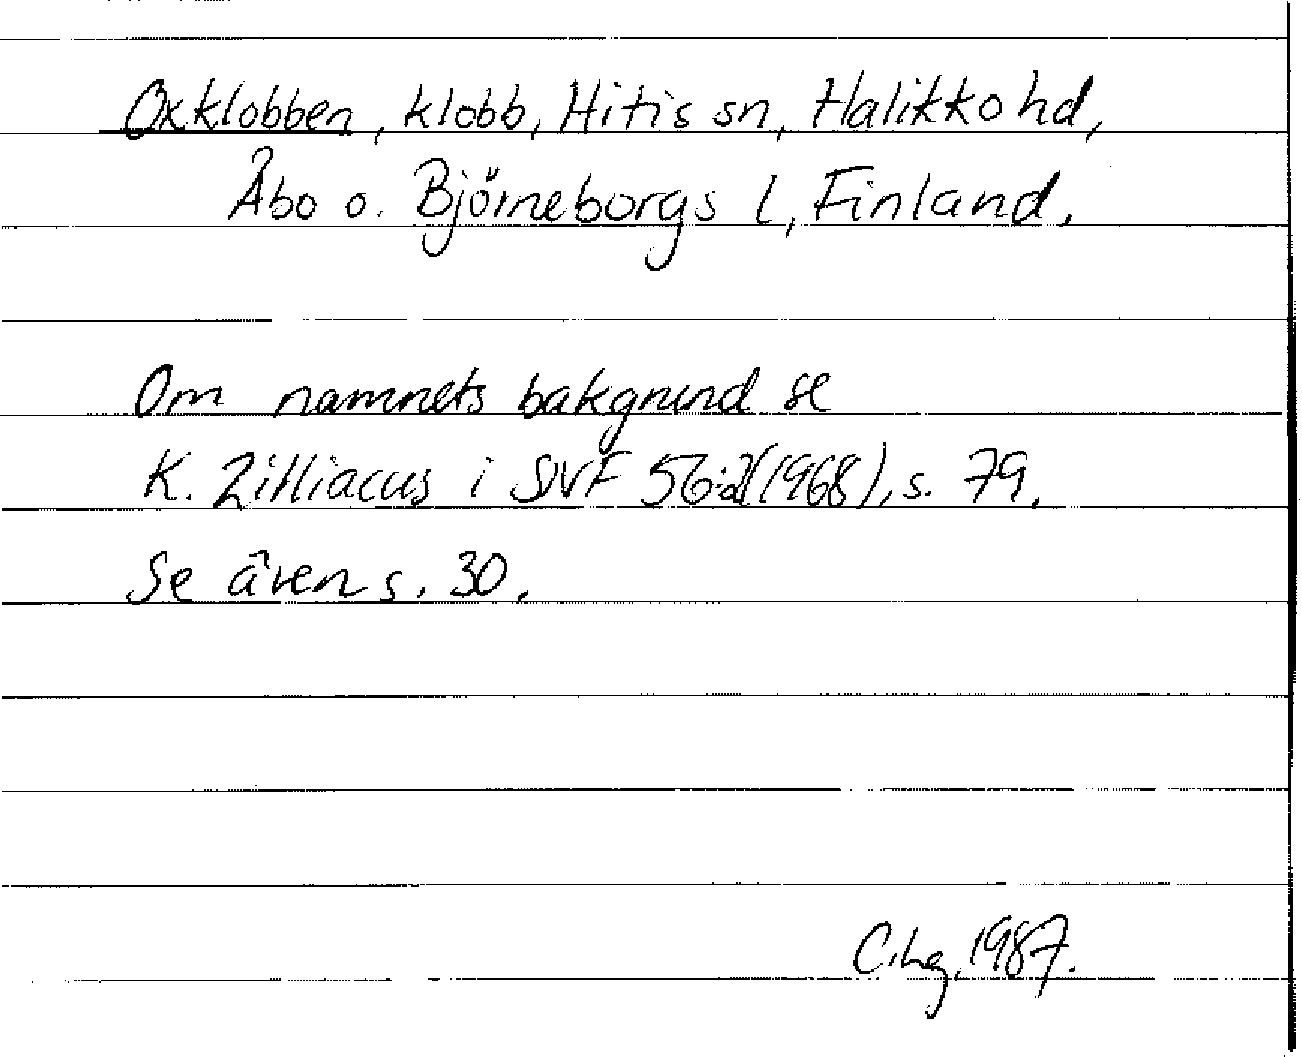 Oxklobben, klobb, Hitis sn, Halikko hd,
Åbo o. Björneborgs l, Finland.
Om namnets bakgrund se
K. Zilliacus i SNF 56:2 (1968), s. 79.
Se även s. 30.
1987.